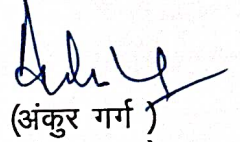 (अंकुर गर्ग )